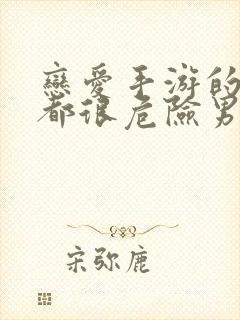 戀愛手游的
都很危險男
宋弥鹿